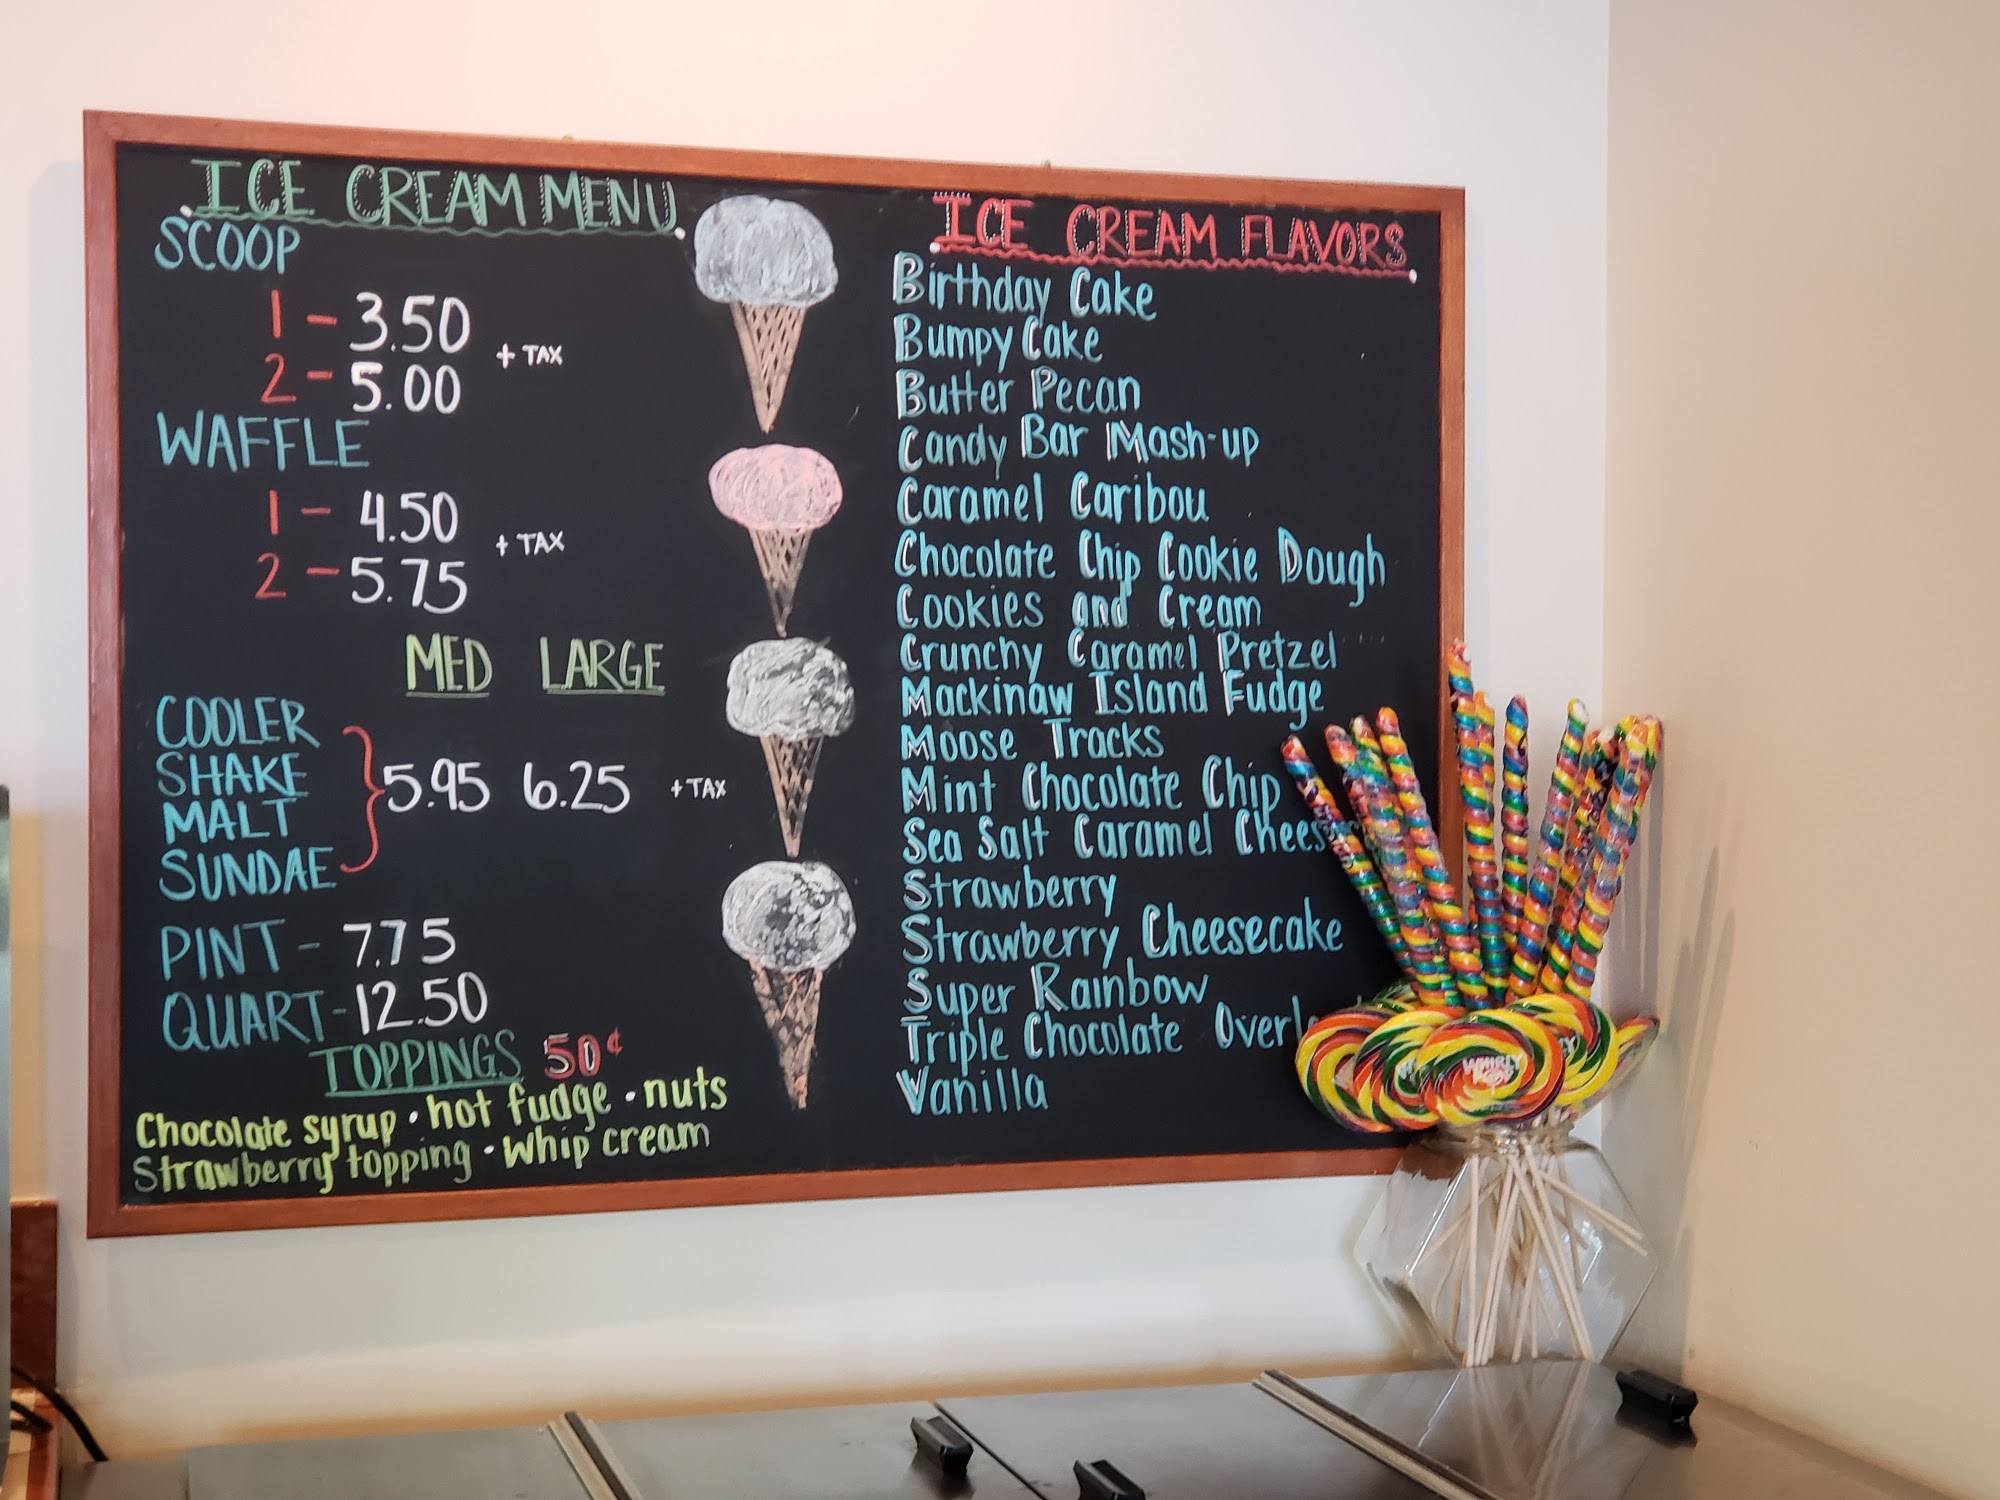 ICE CREAM MENU
SCOOP
1 - 3.50
2 - 5.00
+ TAX
WAFFLE
1 - 4.50
2 - 5.75
+ TAX
MED LARGE
COOLER
SHAKE
MALT
SUNDAE
5.95 6.25 + TAX
PINT - 7.75
QUART - 12.50
TOPPINGS 50¢
Chocolate syrup • hot fudge • nuts
Strawberry topping • Whip cream
ICE CREAM FLAVORS
Birthday Cake
Bumpy Cake
Butter Pecan
Candy Bar Mash-up
Caramel Caribou
Chocolate Chip Cookie Dough
Cookies and Cream
Crunchy Caramel Pretzel
Mackinaw Island Fudge
Moose Tracks
Mint Chocolate Chip
Sea Salt Caramel Chees
Strawberry
Strawberry Cheesecake
Super Rainbow
Triple Chocolate Overl
Vanilla
WHIRLY
POP